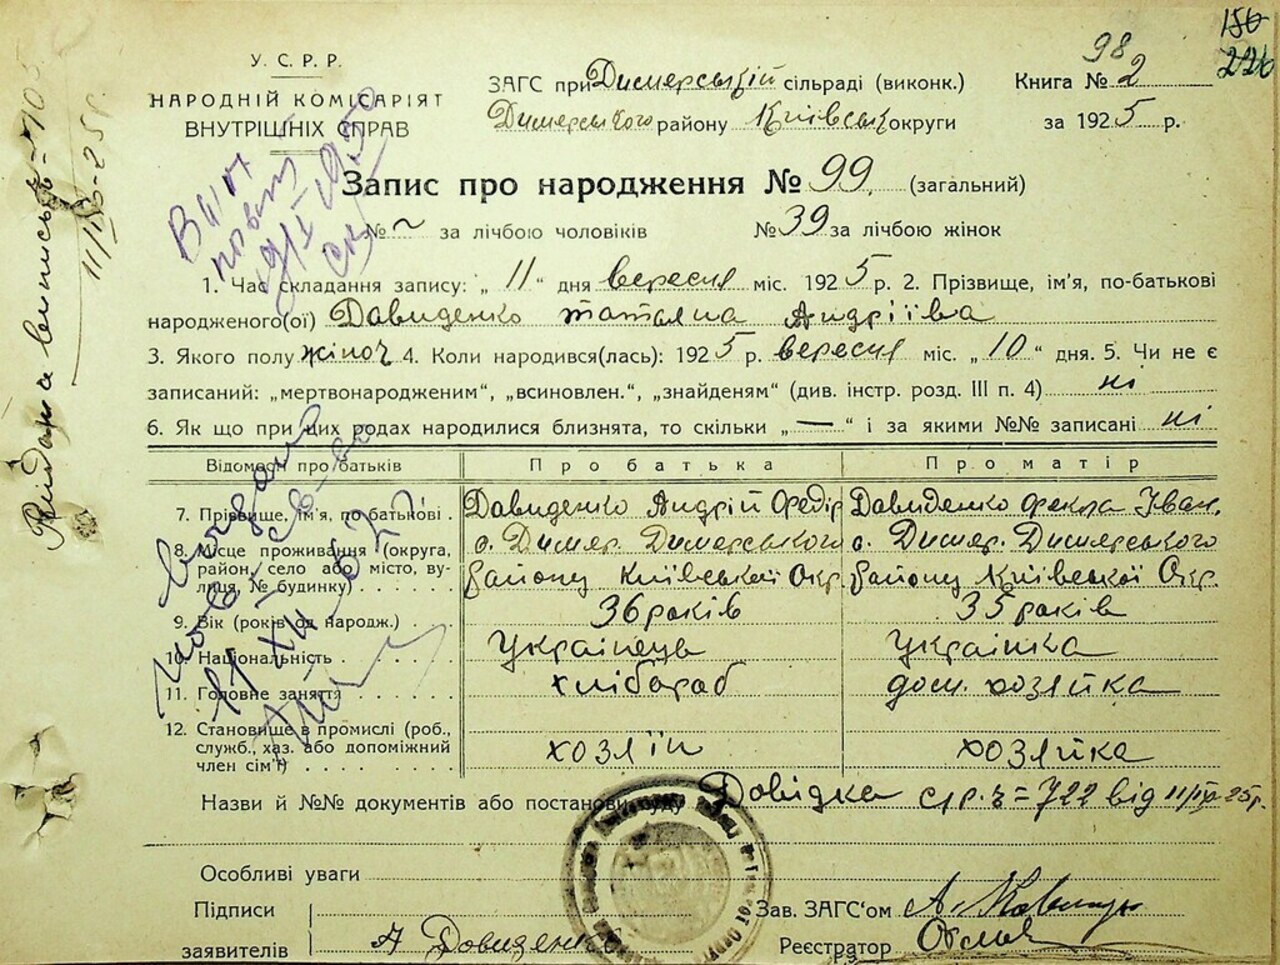 150
226
98
У. С. Р. Р.
НАРОДНІЙ КОМІСАРІЯТ
ВНУТРІШНІХ СПРАВ
ЗАГС при Димерській сільраді (виконк.)
Димерського району Київськ округи
Книга № 2
за 1925 р.
Запис про народження № 99. (загальний)
№ ~ за лічбою чоловіків № 39 за лічбою жінок
1. Час складання запису: „ 11 “ дня вересня міс. 1925 р. 2. Прізвище, ім'я, по-батькові
народженого(ої) Давиденко Татьяна Андріївна
3. Якого полу жіноч 4. Коли народився(лась): 1925 р. вересня міс. „ 10 “ дня. 5. Чи не є
записаний: „мертвонародженим“, „всиновлен.“, „знайденям“ (див. інстр. розд. III п. 4) ні
6. Як що при цих родах народилися близнята, то скільки „ — “ і за якими №№ записані ні
Відомості про батьків Про батька Про матір
7. Прізвище, ім'я, по-батькові . Давиденко Андрій Федір Давиденко Фекла Іван.
8. Місце проживання (округа, с. Димер. Димерського с. Димер. Димерського
район, село або місто, ву-
лиця, № будинку) . . . . . району Київської Окр. району Київської Окр.
9. Вік (років од народж.) . . 36 років 35 років
10. Національність . . . . . Українець Українка
11. Головне заняття . . . . . хлібараб дом. хозяйка
12. Становище в промислі (роб.,
служб., хаз. або допоміжний хозяїн хозяйка
член сім'ї) . . . . . . .
Назви й №№ документів або постанови суду Довідка с/р. ч = 722 від 11/IX 25р.
Особливі уваги
Підписи
заявителів А Довиденко
Зав. ЗАГС‘ом
Реєстратор